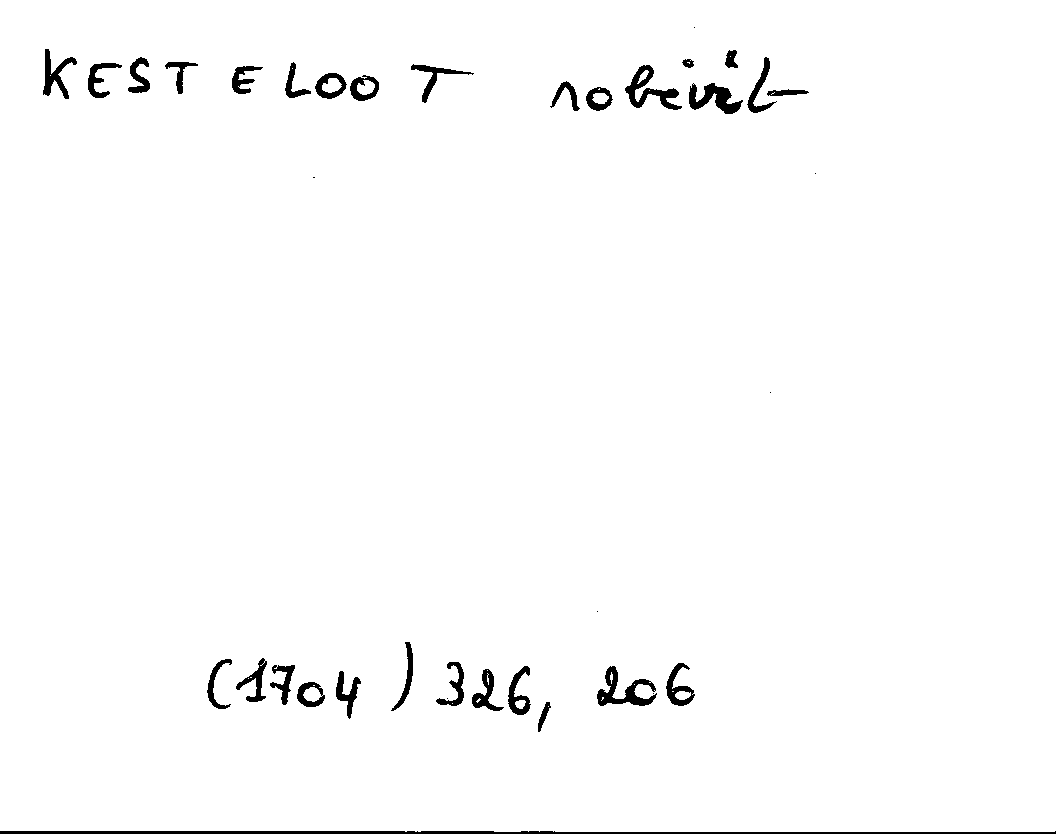 KESTELOOT
(1704) 326, 206